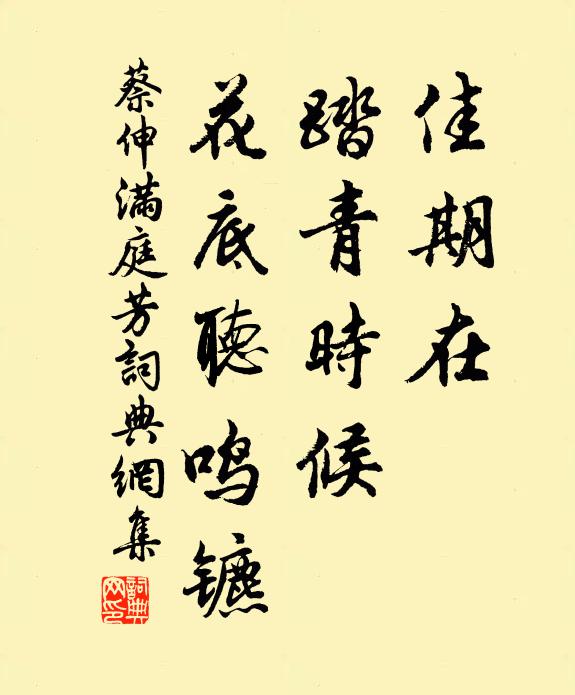 佳期在
踏青時候
花底聽鸣镳
蔡伸满庭芳詞典網集
詞典网印